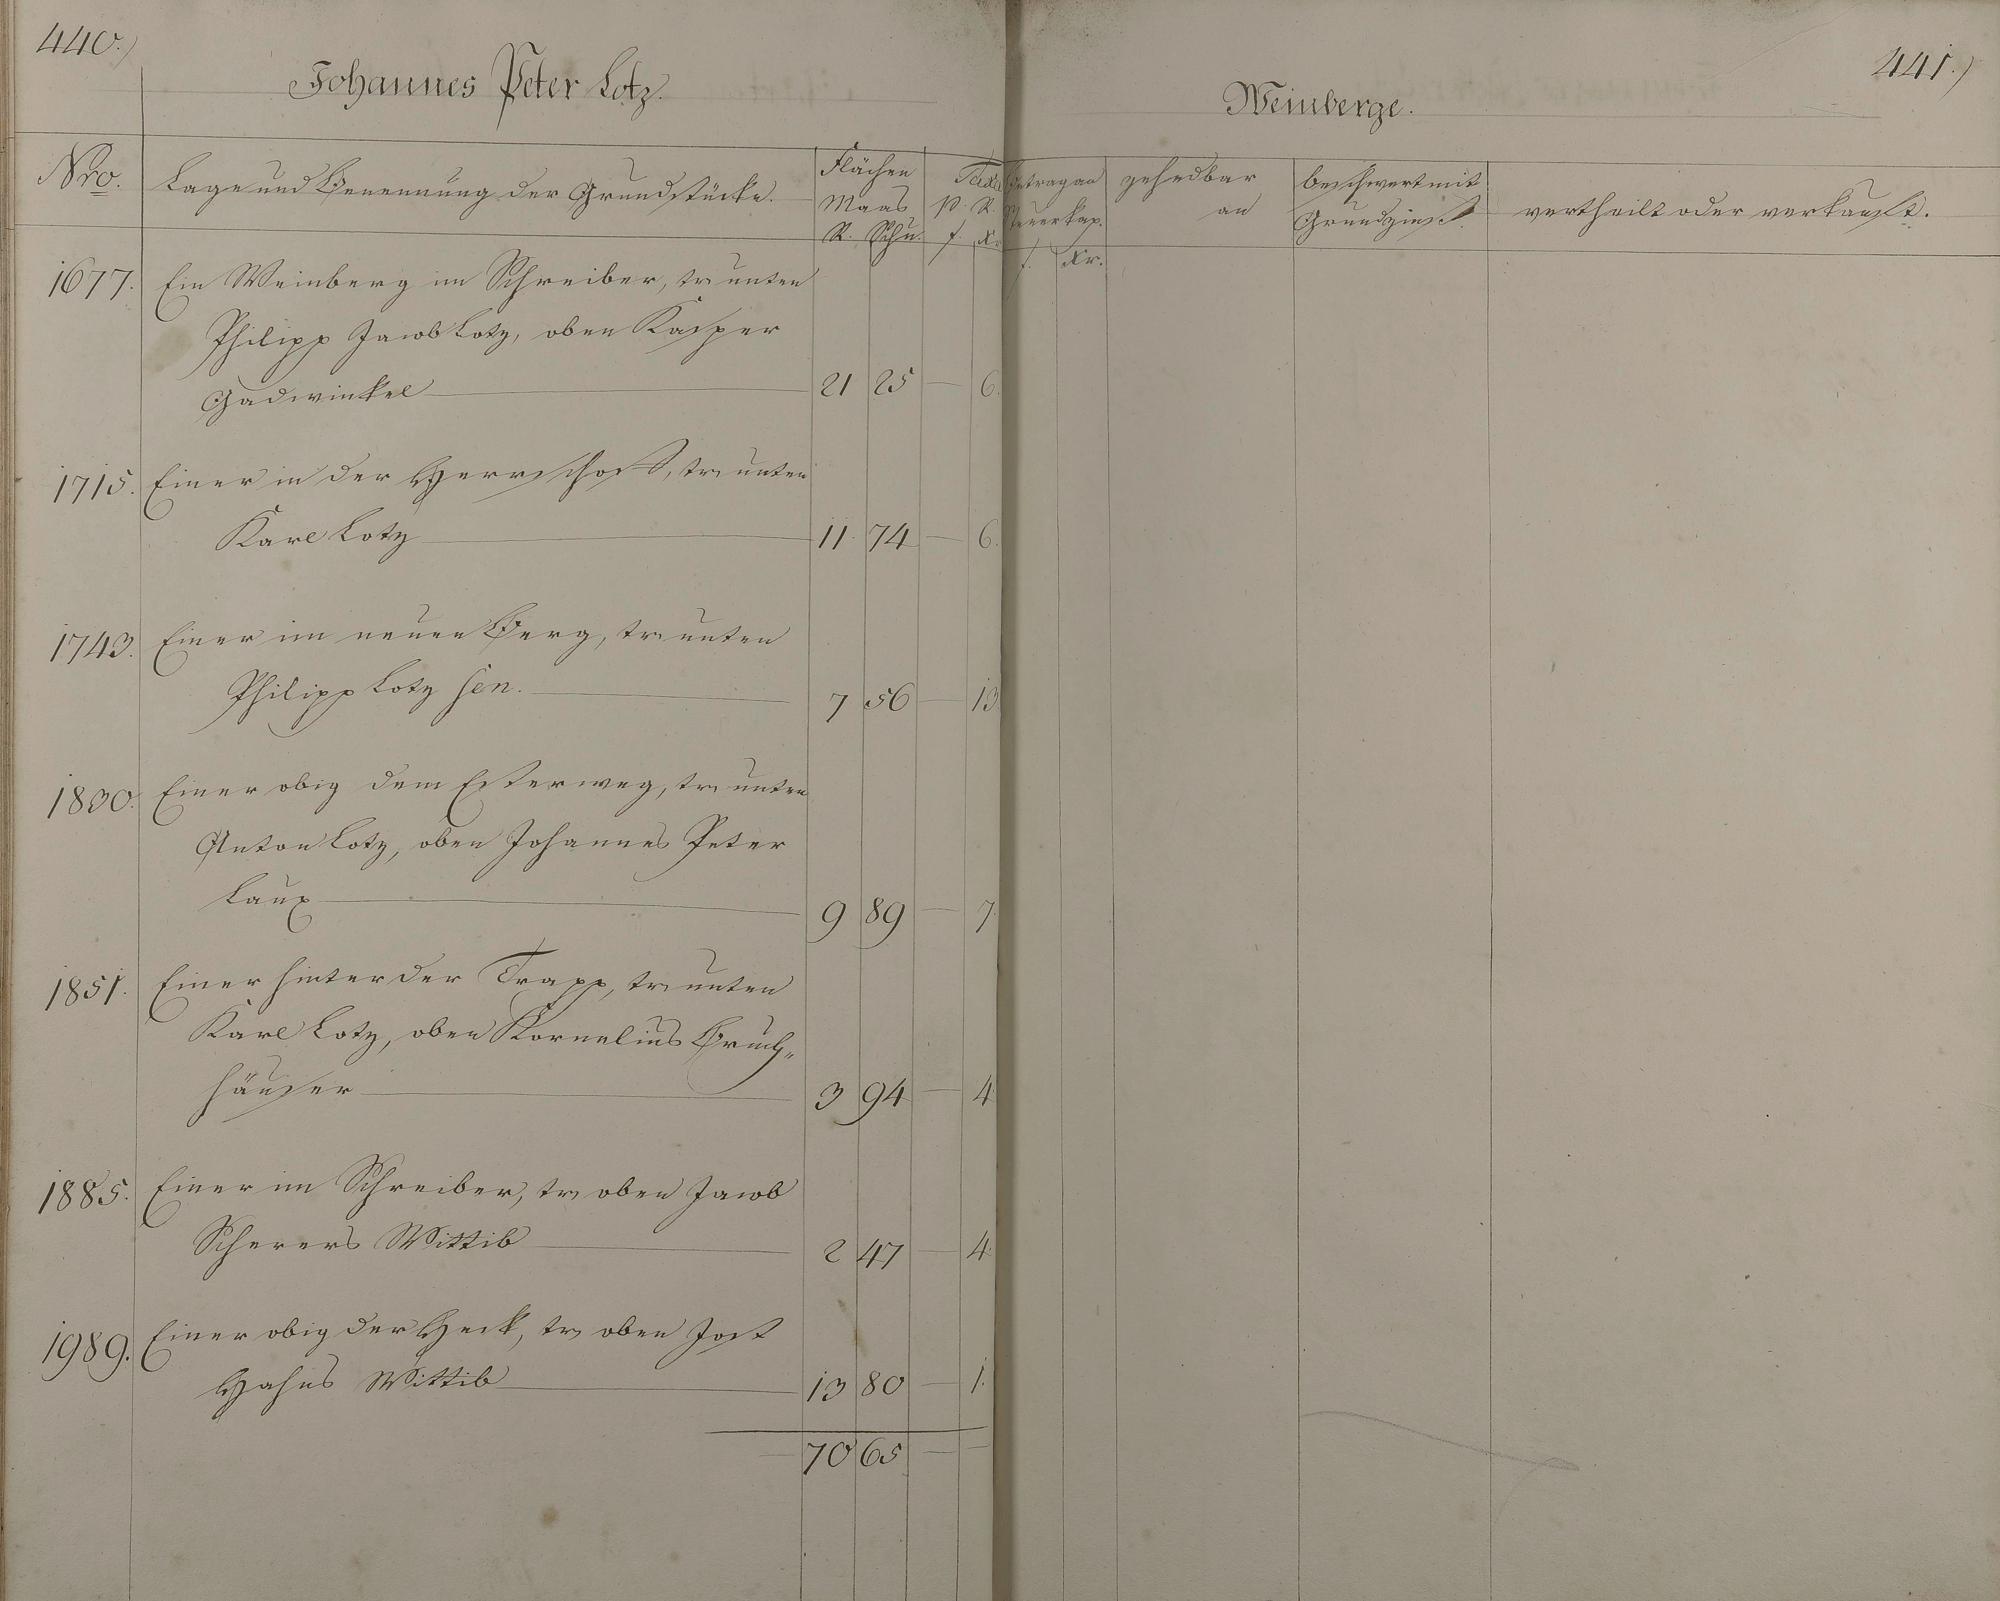 440.)
Johannes Peter Lotz.
Nro.
Lage und Benennung der Grundstücke.
Flächen
Maas
R. Schu.
Taxa
p. R.
f. Xr.
1677. Ein Weinberg im Schreiber, tr unten
Philipp Jacob Lotz, oben Kasper
Gadwinkel 21 25 — 6.
1715. Einer in der Herrschaft, tr unten
Karl Lotz 11 74 — 6.
1743. Einer im neuen Berg, tr unten
Philipp Lotz sen. 7 56 — 13
1830. Einer obig dem Esterweg, tr unten
Anton Lotz, oben Johannes Peter
Laux 9 89 — 7.
1851. Einer hinter der Trapp, tr unten
Karl Lotz, oben Kornelius Bruch„
häuser 3 94 — 4
1885. Einer im Schreiber, tr oben Jacob
Scherers Wittib 2 47 — 4.
1989. Einer obig der Heck, tr oben Jost
Hahns Wittib 13 80 — 1.
— 70 65 — —
441.)
Weinberge.
Betrag an
Steuerkap.
f. Xr.
zehedbar
an
beschwert mit
Grundzinß.
vertheilt oder verkauft.